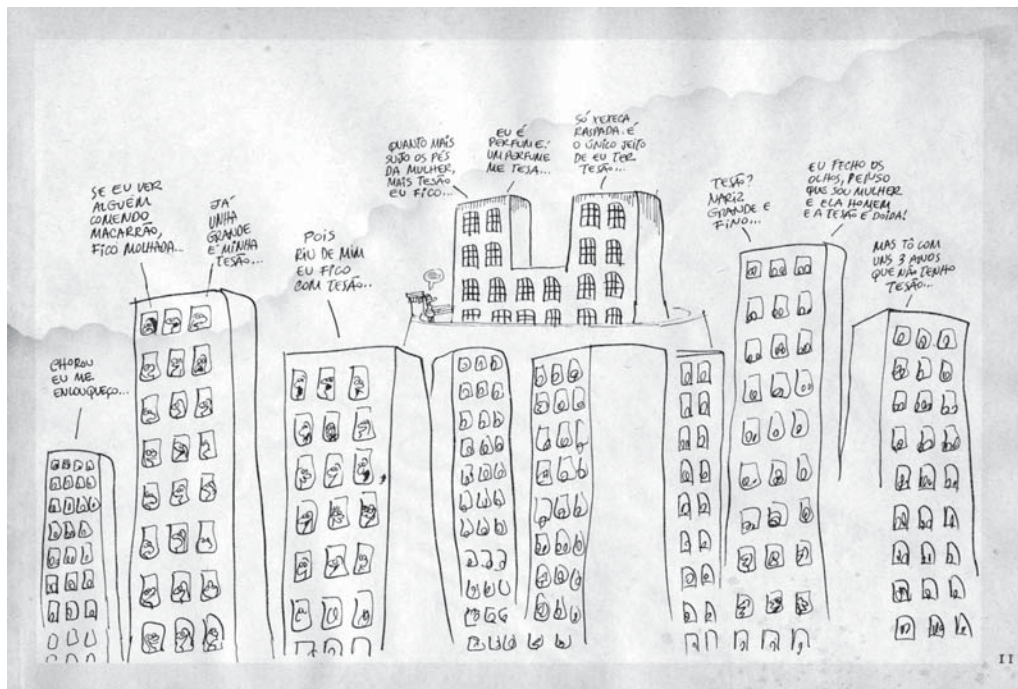 CHOROU
EU ME
ENLOUQUEÇO...
SE EU VER
ALGUÉM
COMENDO
MACARRÃO,
FICO MOLHADA...
JÁ
UNHA
GRANDE
É MINHA
TESÃO...
POIS
RIU DE MIM
EU FICO
COM TESÃO...
QUANTO MAIS
SUJO OS PÉS
DA MULHER,
MAIS TESÃO
EU FICO...
EU É
PERFUME.
UM PERFUME
ME TESA...
SÓ XERECA
RASPADA. É
O ÚNICO JEITO
DE EU TER
TESÃO...
TESÃO?
NARIZ
GRANDE E
FINO...
EU FECHO OS
OLHOS, PENSO
QUE SOU MULHER
E ELA HOMEM
E A TESÃO É DOIDA!
MAS TÔ COM
UNS 3 ANOS
QUE NÃO TENHO
TESÃO...
11